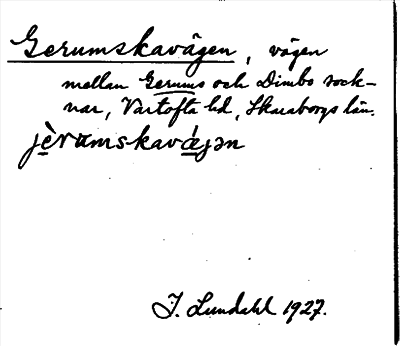 Gerumskavägen, vägen
mellan Gerums och Dimbo sock-
nar, Vartofta hd, Skaraborgs län.
jèrumskavǽjən
I. Lundahl 1927.